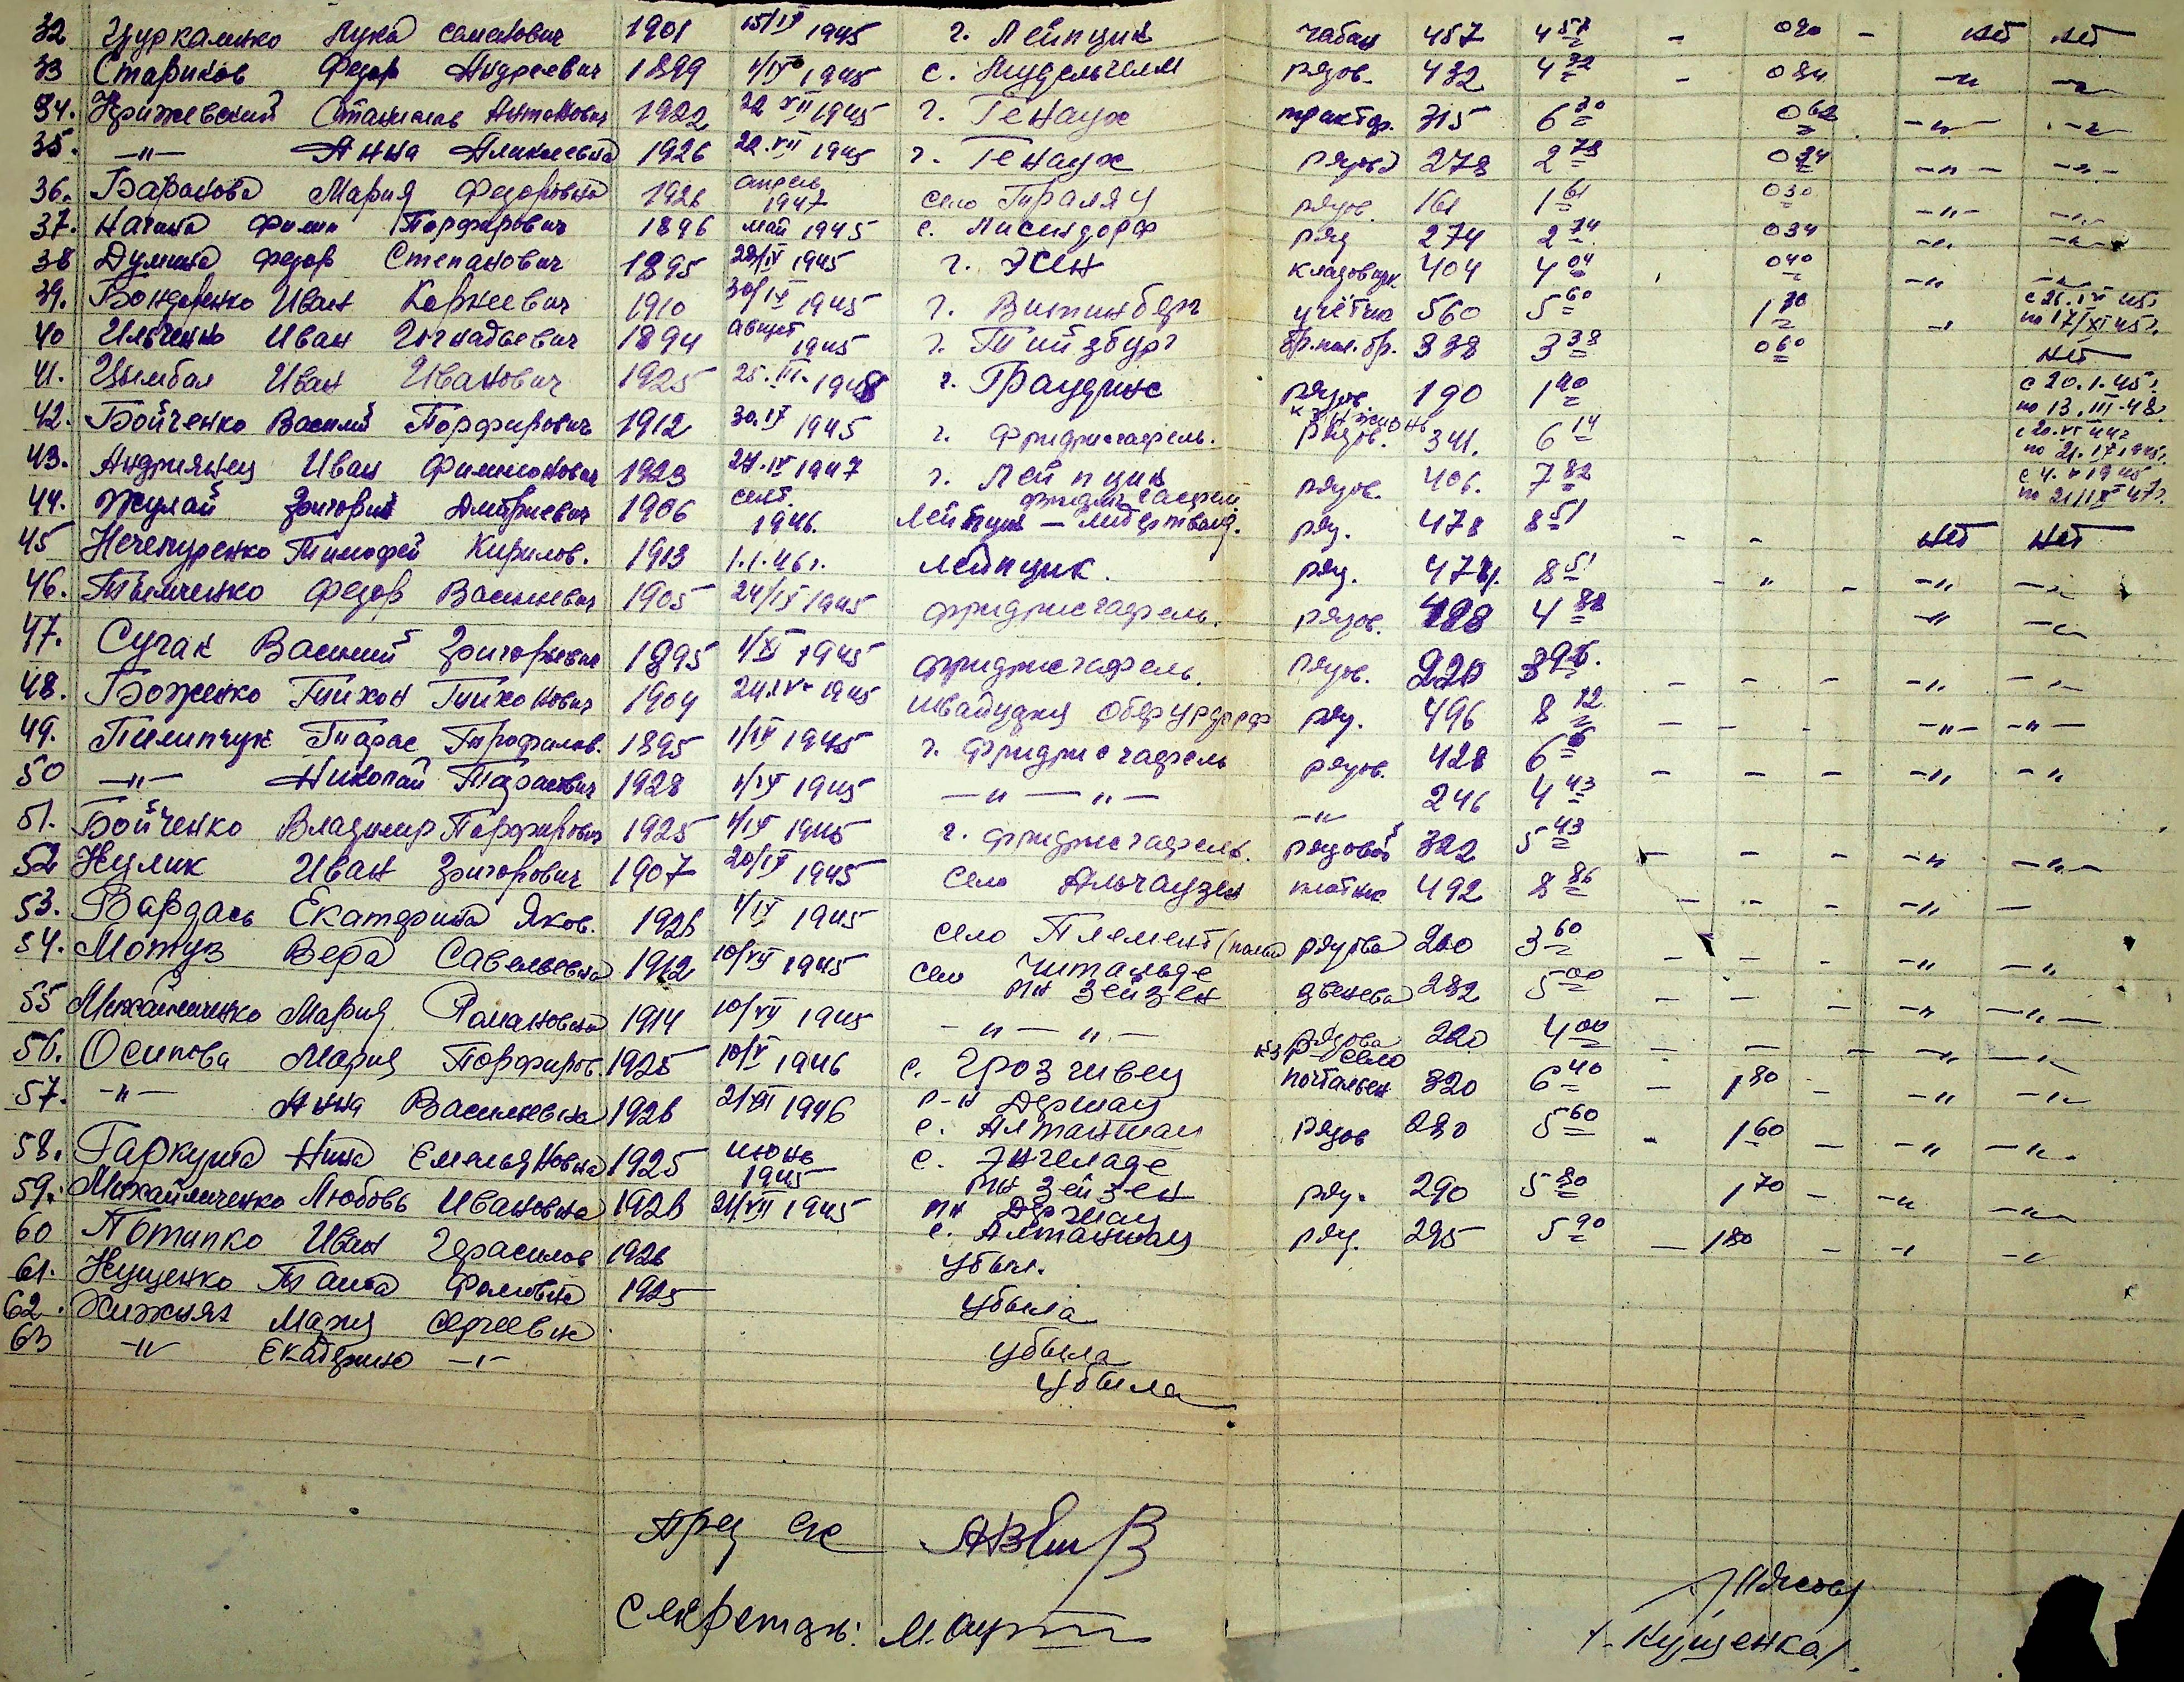 32 Цуркаленко Лука Семенович 1901 15/IV 1945 г. Лейпциг чабан 457 4 57 - 090 - нет нет
33 Стариков Федор Андреевич 1899 1/IV 1945 с. рядов. 432 4 32 - 084 -"- -"-
34. Крижевский Станислав Антонович 1922 22 XII 1945 г. Генаух трактор. 315 6 30 062 -"- -"-
35. -"- Анна Алексеевна 1926 22.VII 1945 г. Генаух рядов 278 2 78 034 -"- -"-
36. Баранова Мария Федоровна 1926 апрель 1947 село рядов. 161 1 61 030 -"- -"-
37. Начина Филип Порфирович 1896 май 1945 с. Лисиндорф ряд 274 2 74 034 -"- -"-
38 Думина Федор Степанович 1895 28/IV 1945 г. Эсен кладовщик 404 4 04 040 -"- -"-
39. Бондаренко Иван Корнеевич 1910 30/IV 1945 г. Витинберг учётчик 560 5 60 1 70 -"- с 26.IV 45г. по 17/XI 45г.
40 Ильченко Иван Игнадьевич 1894 август 1945 г. Тийзбург бр.пол.бр. 338 3 38 060 нет
41. Цымбал Иван Иванович 1925 25.III.1948 г. Граудинс рядов. 190 1 90 с 20.1.45г. по 13.III-48г.
42. Бойченко Василий Порфирович 1912 30.IV 1945 г. Фридрисгафель. рядов. 341. 6 14 с 20.VI 44г по 21.IV 1945г.
43. Андриянец Иван Филимонович 1923 24.IV 1947 г. Лейпциг рядов. 406. 7 82 с 4.V 1945 по 21/IV 47г.
44. Жулай Григорий Дмитриевич 1906 сент. 1946. Фридрисгафель Лейпциг - ряд. 478 8 51 - - нет нет
45 Нечепуренко Тимофей Кирилов. 1913 1.1.46г. Лейпцик. ряд. 474. 8 51 - " - -"- -"-
46. Тымченко Федор Васильевич 1905 24/IV 1945 Фридрисгафель. рядов. 488 4 88 -"- -"-
47. Сугак Василий Григорьевич 1895 1/XI 1945 Фридрисгафель. рядов. 220 3 96. - - - -"- -"-
48. Боженко Тихон Тихонович 1904 24.IV 1945 Швайцария ряд. 496 8 12 - - - -"- -"-
49. Пилипчук Тарас Трофимов. 1895 1/IV 1945 г. Фридрисгафель рядов. 428 6 - - - - -"- -"-
50 -"- Николай Тарасович 1928 1/IV 1945 -"- "- -"- 246 4 43
51. Бойченко Владимир Порфирович 1925 1/IV 1945 г. Фридрисгафель. рядовой 322 5 43 - - - - -"- -"-
52 Кулик Иван Григорович 1907 20/IV 1945 село Альгаузен плотник 492 8 86 - - - -"- -
53. Вардась Екатерина Яков. 1926 1/IV 1945 село Племент рядова 200 3 60 - - - -"- -"-
54. Мотуз Вера Савельевна 1912 10/VII 1945 село рн Зейзен звенева 282 5 00 - - - -"- -"-
55 Михайличенко Мария Романовна 1914 10/VII 1945 -"- "- рядова 220 4 00 - - - -"- -"-
56. Осипова Мария Порфиров. 1925 10/V 1946 с. р-н Дершау почтальен 320 6 40 - 1 80 - -"- -"-
57. -"- Анна Васильевна 1926 21/VII 1946 с. Алтаншац рядов 280 5 60 - 1 60 - -"- -"-
58. Гаркуша Нина Емельяновна 1925 июнь 1945 с. Энгеладе рн Зейзен ряд. 290 5 80 1 70 - -"- -"-
59. Михайличенко Любовь Ивановна 1926 24/VII 1945 рн Дершау с. Алтаншац ряд. 295 5 90 - 180 - -"- -"-
60 Потапко Иван Герасимов 1926 убыл.
61. Кущенко Таиса Фомовна 1925 убыла
62. Хижняк Мария Сергеевна убыла
63 -"- Екатерина -"- убыла
Пред с/с
Секретарь:
/Лясов/
/-Кущенка/.